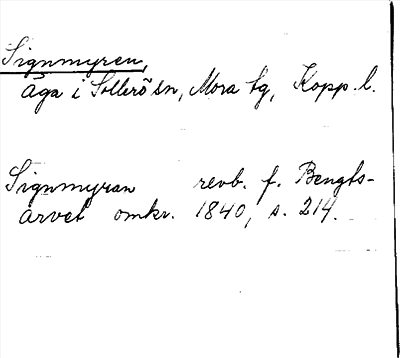 Signmyren,
äga i Sollerö sn, Mora tg, Kopp. l.
Signmyran revb. f. Bengts-
arvet omkr. 1840, s. 214.